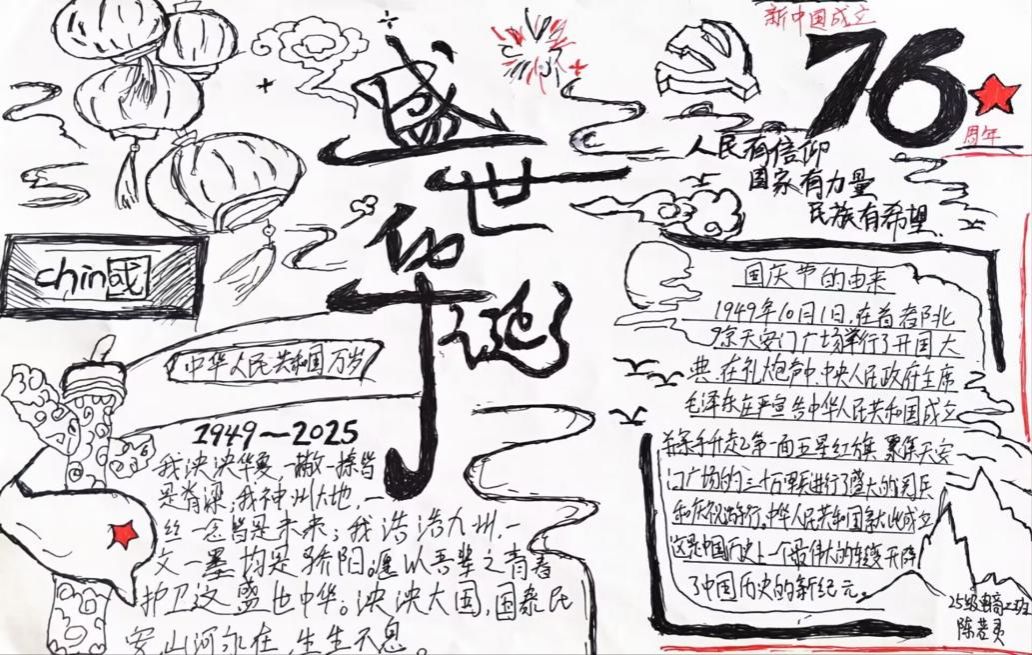 盛世华诞
新中国成立
76
周年
人民有信仰
国家有力量
民族有希望
chin国
中华人民共和国万岁
1949~2025
我泱泱华夏,一撇一捺皆
是脊梁;我神州大地,一
丝一念皆是未来;我浩浩九州,一
文一墨均是骄阳。愿以吾辈之青春
护卫这盛世中华。泱泱大国,国泰民
安,山河永在,生生不息。
国庆节的由来
1949年10月1日,在首都北
京天安门广场举行了开国大
典,在礼炮声中,中央人民政府主席
毛泽东庄严宣告中华人民共和国成立
并亲手升起了第一面五星红旗 聚集天安
门广场的三十万军民进行了盛大的阅兵
和庆祝游行。中华人民共和国就此成立
这是中国历史上一个最伟大的转变 开辟
了中国历史的新纪元。
25级电商二班